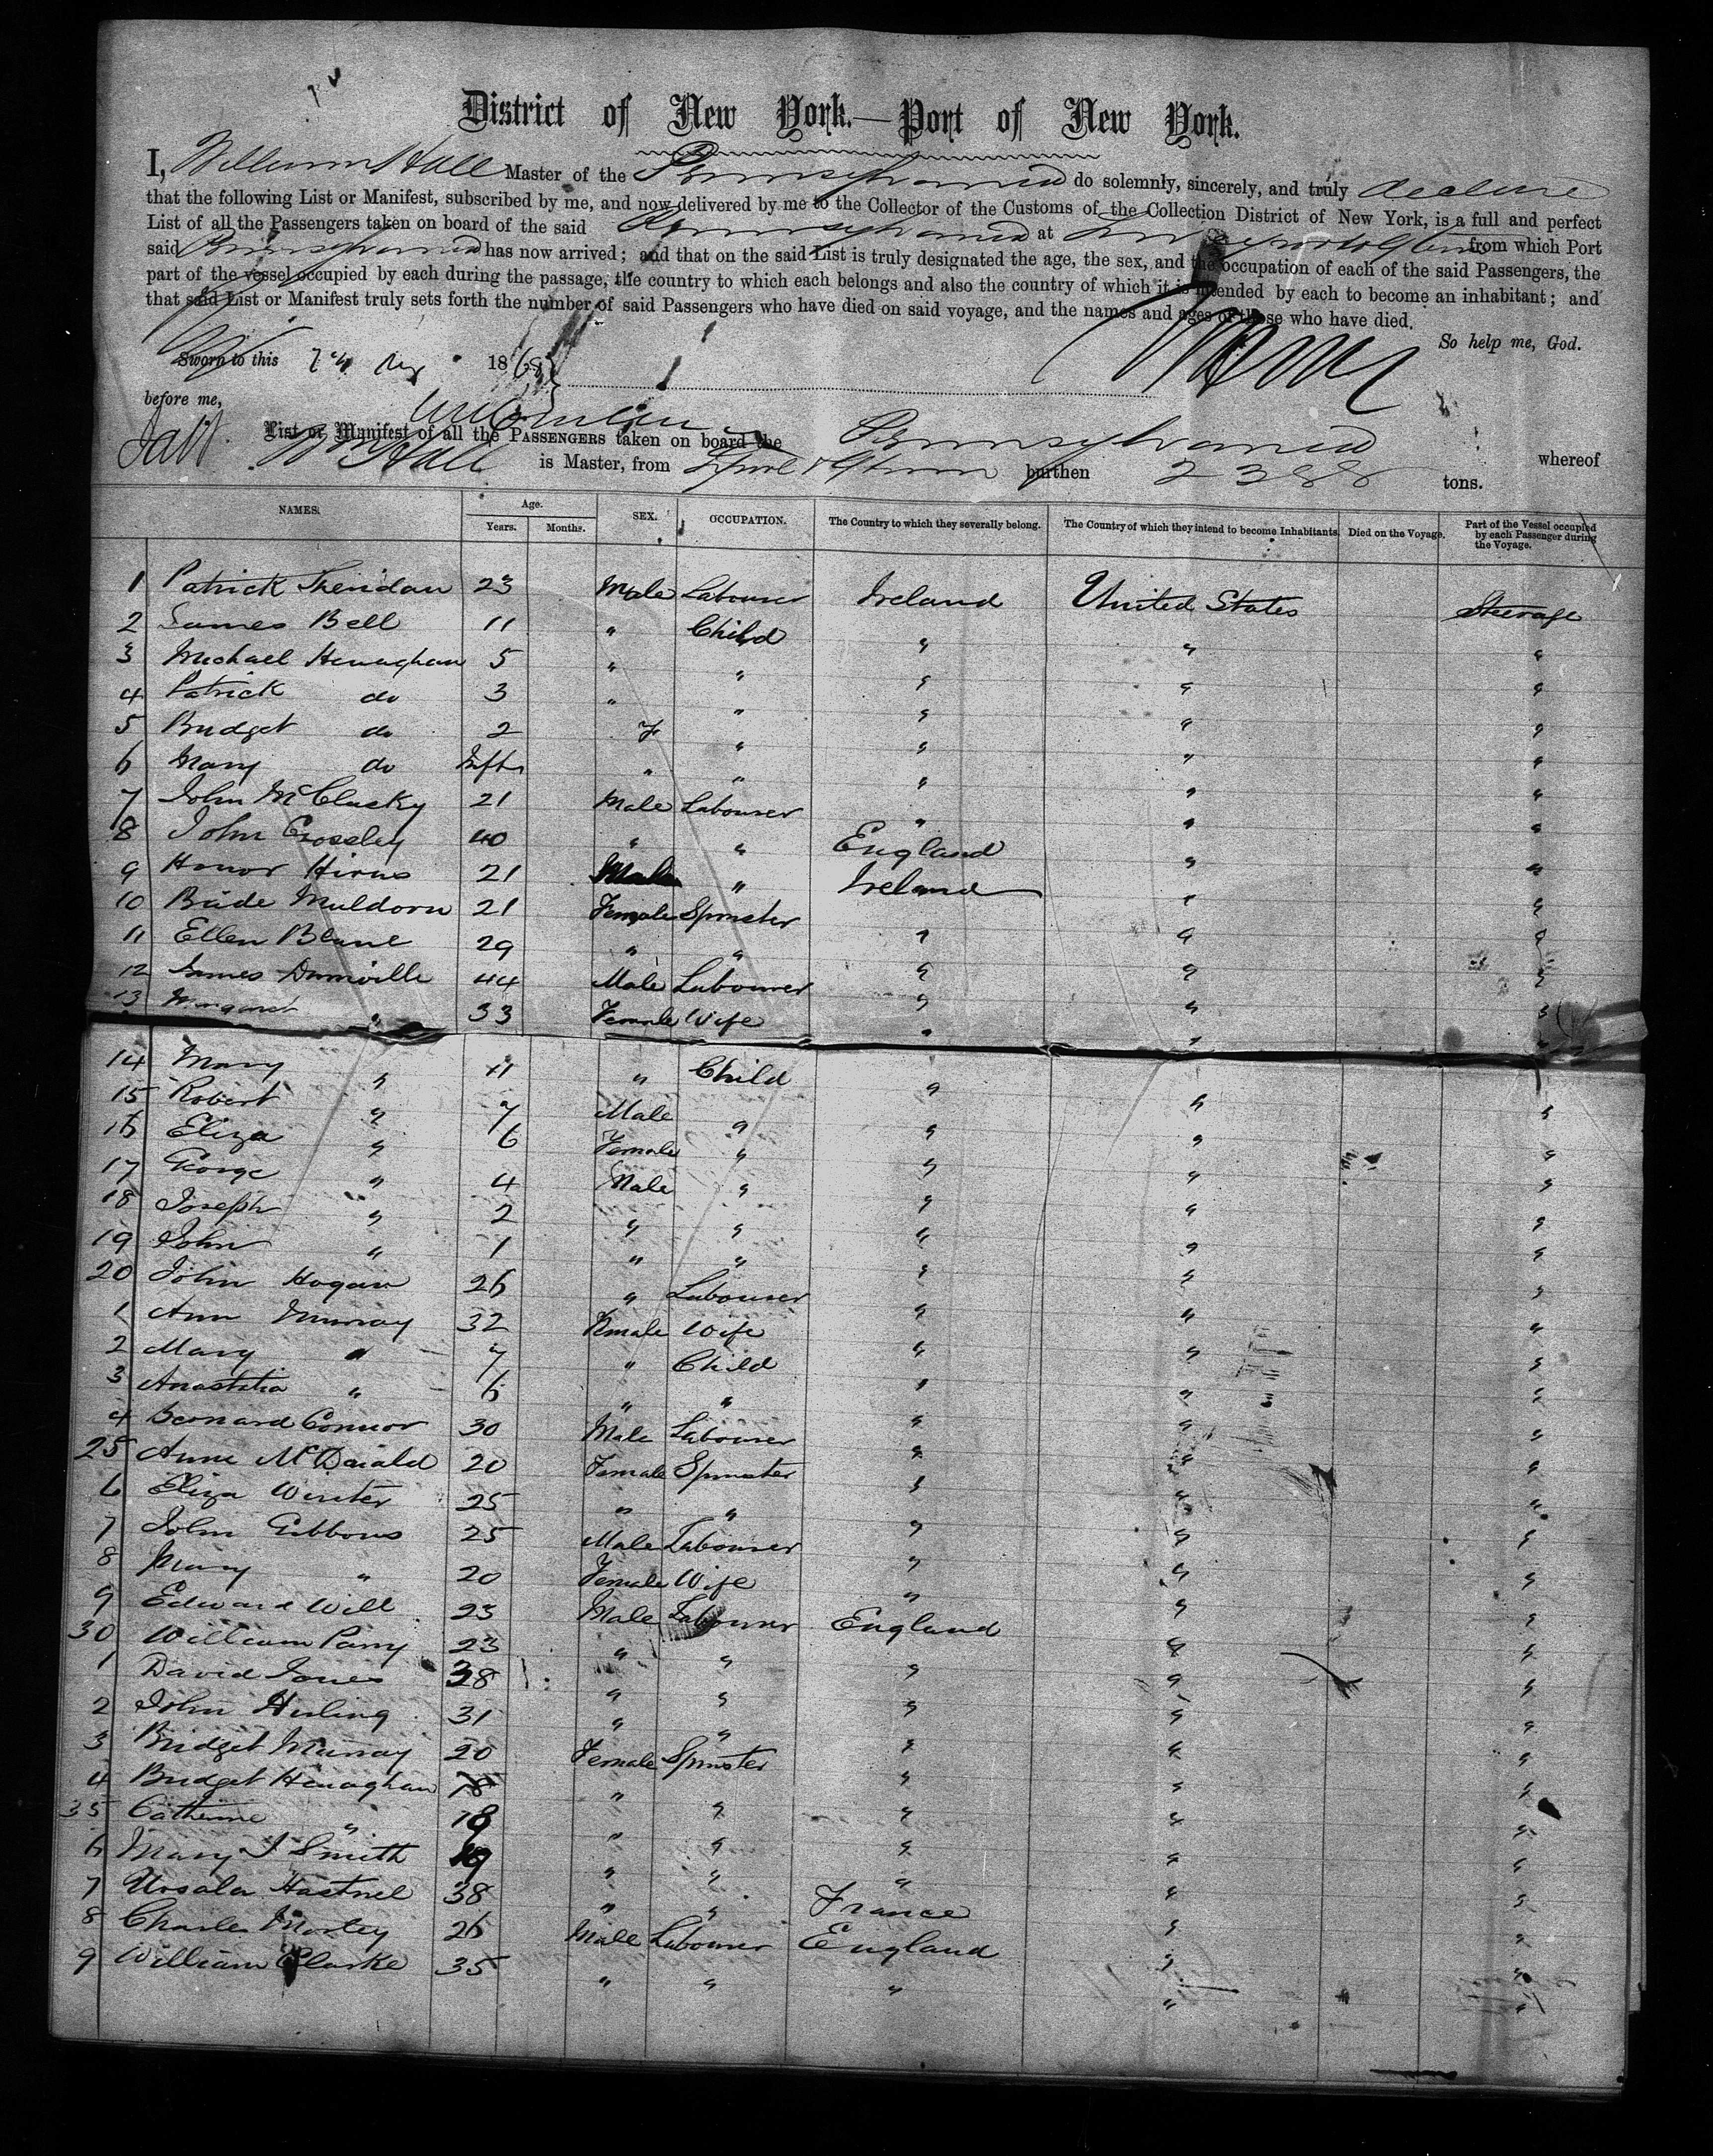 District of New York.—Port of New York.
I, William Hall Master of the Pennsylvania do solemnly, sincerely, and truly declare
that the following List or Manifest, subscribed by me, and now delivered by me to the Collector of the Customs of the Collection District of New York, is a full and perfect
List of all the Passengers taken on board of the said Pennsylvania at from which Port
said Pennsylvania has now arrived; and that on the said List is truly designated the age, the sex, and the occupation of each of the said Passengers, the
part of the vessel occupied by each during the passage, the country to which each belongs and also the country of which it is intended by each to become an inhabitant; and
that said List or Manifest truly sets forth the number of said Passengers who have died on said voyage, and the names and ages of those who have died.
So help me, God.
Sworn to this 7th 1868
before me,
List or Manifest of all the PASSENGERS taken on board the Pennsylvania whereof
Wm Hall is Master, from burthen 2388 tons.
NAMES. Age. Years. Months. SEX. OCCUPATION. The Country to which they severally belong. The Country of which they intend to become Inhabitants. Died on the Voyage. Part of the Vessel occupied by each Passenger during the Voyage.
1 Patrick Sheridan 23 Male Labourer Ireland United States Steerage
2 James Bell 11 " Child " " "
3 Michael Henaghan 5 " " " " "
4 Patrick do 3 " " " " "
5 Bridget do 2 F " " " "
6 Mary do Inft " " " " "
7 John McClusky 21 Male Labourer " " "
8 John Crossley 40 " " England " "
9 Honor Hirns 21 Male " Ireland " "
10 Bride Muldoon 21 Female Spinster " " "
11 Ellen Blane 29 " " " " "
12 James Dumville 44 Male Labourer " " "
13 Margaret " 33 Female Wife " " "
14 Mary " 11 " Child " " "
15 Robert " 7 Male " " " "
16 Eliza " 6 Female " " " "
17 George " 4 Male " " " "
18 Joseph " 2 " " " " "
19 John " 1 " " " " "
20 John Hogan 26 " Labourer " " "
1 Ann Murray 32 Female Wife " " "
2 Mary " 7 " Child " " "
3 Anastatia " 6 " " " " "
4 Bernard Connor 30 Male Labourer " " "
25 Anne McDaiald 20 Female Spinster " " "
6 Eliza Winter 25 " " " " "
7 John Gibbons 25 Male Labourer " " "
8 Mary " 20 Female Wife " " "
9 Edward Will 23 Male Labourer England " "
30 William Parry 23 " " " " "
1 David Jones 38 " " " " "
2 John Hirling 31 " " " " "
3 Bridget Murray 20 Female Spinster " " "
4 Bridget Henaghan 18 " " " " "
35 Catherine " 19 " " " " "
6 Mary J Smith 19 " " " " "
7 Ursala 38 " " France " "
8 Charles Morley 26 Male Labourer England " "
9 William Clarke 35 " " " " "